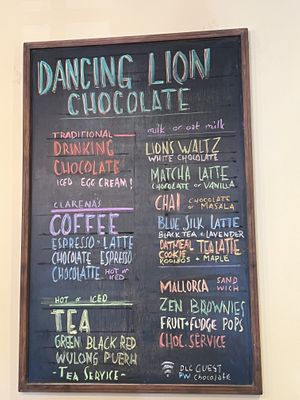 DANCING LION
CHOCOLATE
TRADITIONAL
DRINKING
CHOCOLATE
ICED EGG CREAM!
CLARENA'S
COFFEE
ESPRESSO - LATTE
CHOCOLATE ESPRESSO
CHOCOLATTE HOT or ICED
HOT or ICED
TEA
GREEN BLACK RED
WULONG PUERH
- TEA SERVICE -
milk or oat milk
LIONS WALTZ
WHITE CHOCOLATE
MATCHA LATTE
CHOCOLATE OR VANILLA
CHAI CHOCOLATE or MASALA
BLUE SILK LATTE
BLACK TEA & LAVENDER
OATMEAL COOKIE TEA LATTE
ROOIBOS + MAPLE
MALLORCA SAND WICH
ZEN BROWNIES
FRUIT + FUDGE POPS
CHOC. SERVICE
DLC GUEST
PW chocolate